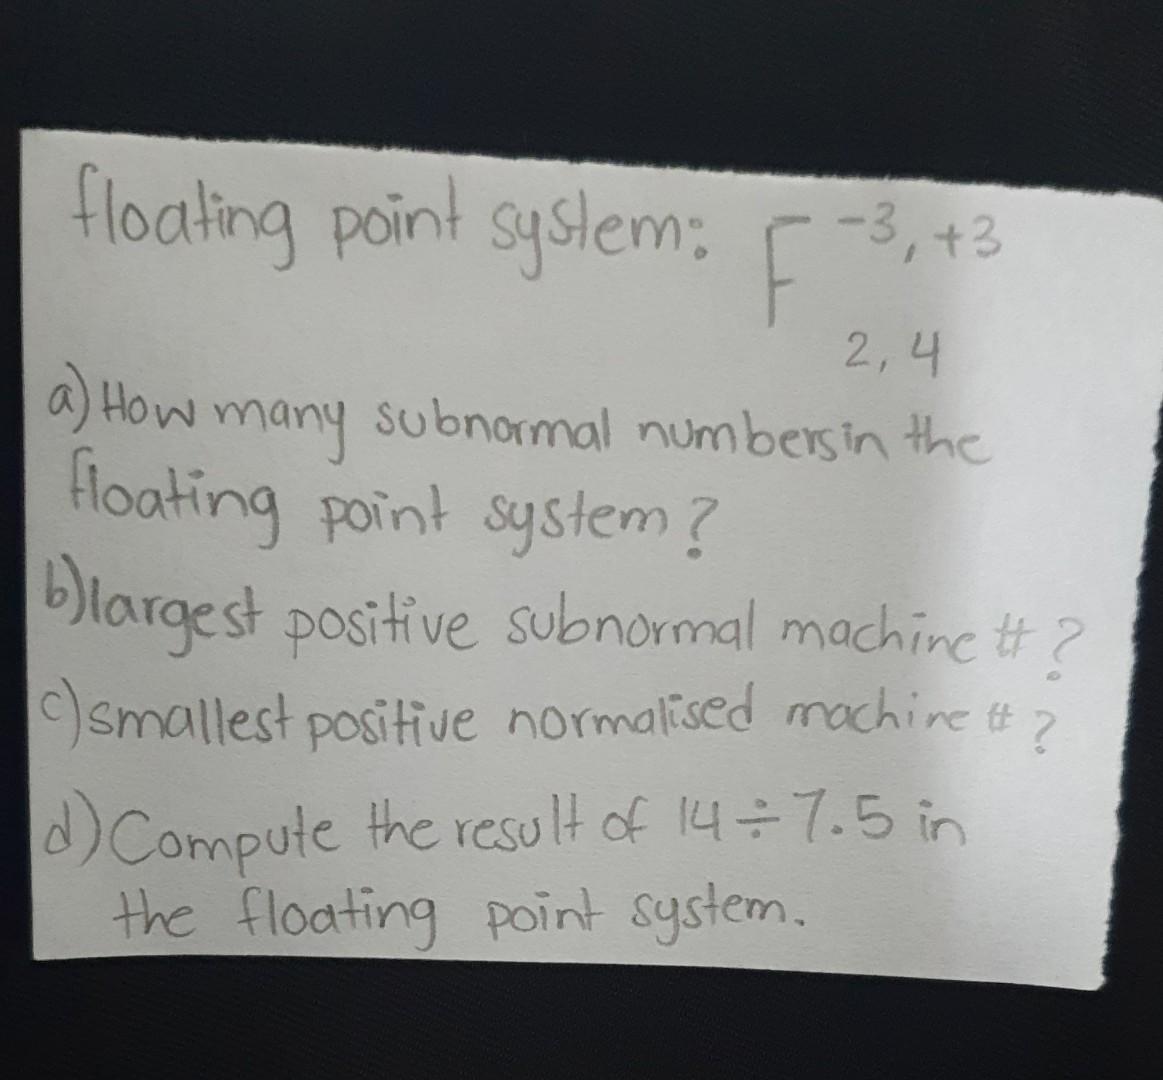 floating point system: F -3, +3
2, 4
a) How many subnormal numbers in the
floating point system?
b) largest positive subnormal machine # ?
c) smallest positive normalised machine # ?
d) Compute the result of 14 ÷ 7.5 in
the floating point system.